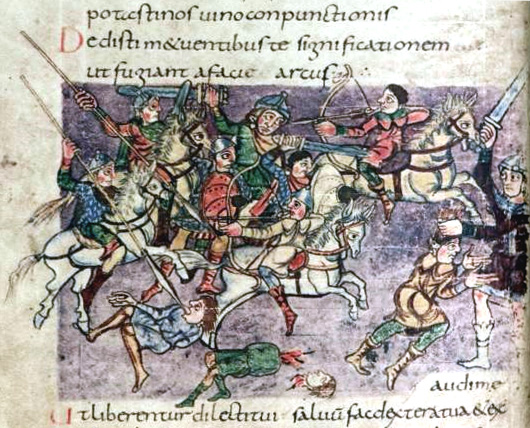 potastinos uino conpunctionis
Dedisti m&uentibus te significationem
ut fugiant afacie arcus
Ut liberentur dilecti tui saluū fac dextera tua & ex
audime